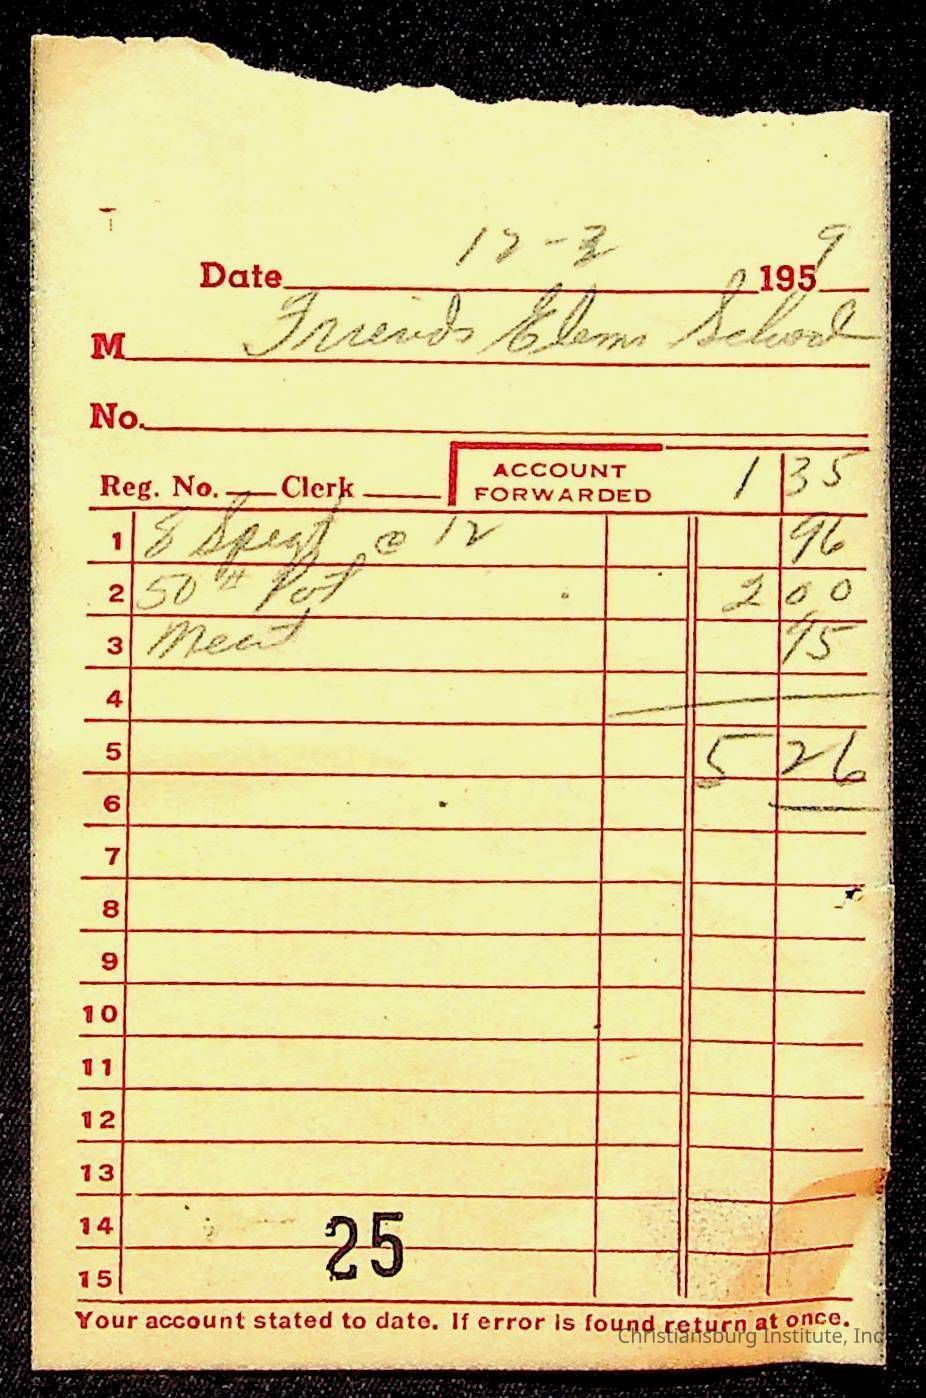 Date 12-2 1959
M Friends Elem School
No.
Reg. No. Clerk ACCOUNT FORWARDED 1 35
1 8 Spegt @ 12 96
2 50 # Pot 2 00
3 Meat 95
4
5 5 26
6
7
8
9
10
11
12
13
14
25
15
Your account stated to date. If error is found return at once.
Christiansburg Institute, Inc